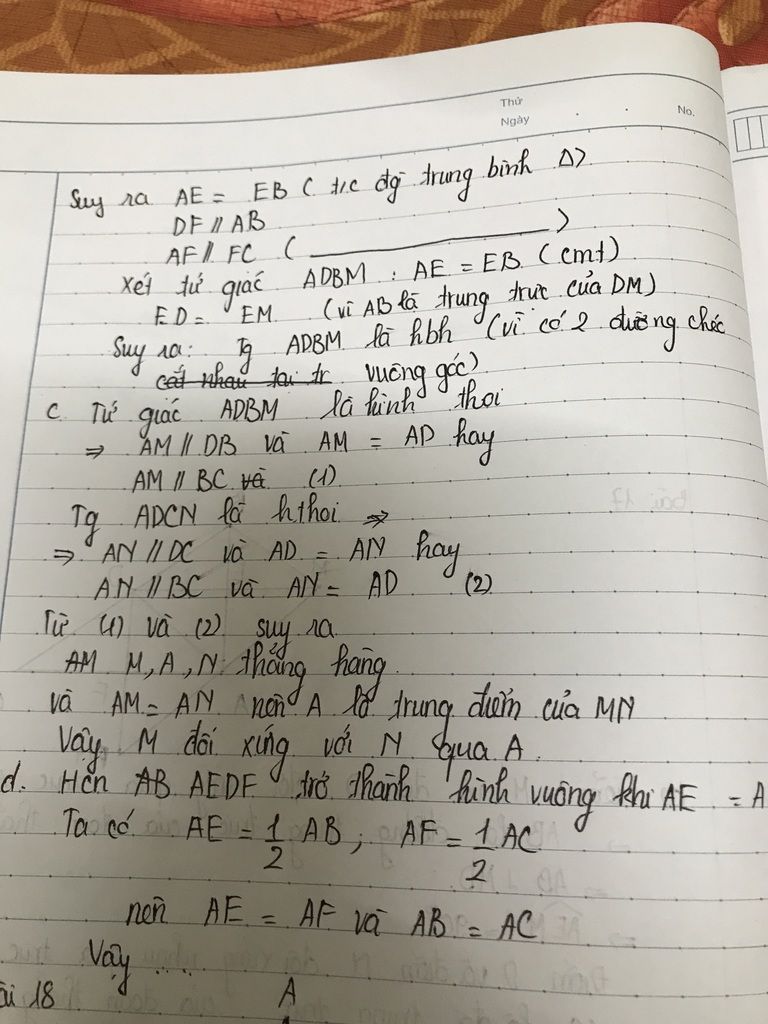 Thứ
Ngày
No.
Suy ra AE = EB ( t/c đg trung bình Δ)
DF // AB
AF // FC ( ________ )
Xét tứ giác ADBM : AE = EB (cmt)
ED = EM (vì AB là trung trực của DM)
Suy ra: Tg ADBM là hbh (vì có 2 đường chéo
cắt nhau tại tr vuông góc)
c Tứ giác ADBM là hình thoi
⇒ AM // DB và AM = AD hay
AM // BC và (1)
Tg ADCN là hthoi ⇒
⇒ AN // DC và AD = AN hay
AN // BC và AN = AD (2)
Từ (1) và (2) suy ra
AM M, A, N thẳng hàng
và AM = AN nên A là trung điểm của MN
Vậy M đối xứng với N qua A.
d. Hcn AB AEDF trở thành hình vuông khi AE = A
Ta có AE = 1/2 AB ; AF = 1/2 AC
nên AE = AF và AB = AC
Vậy ....
ài 18 A